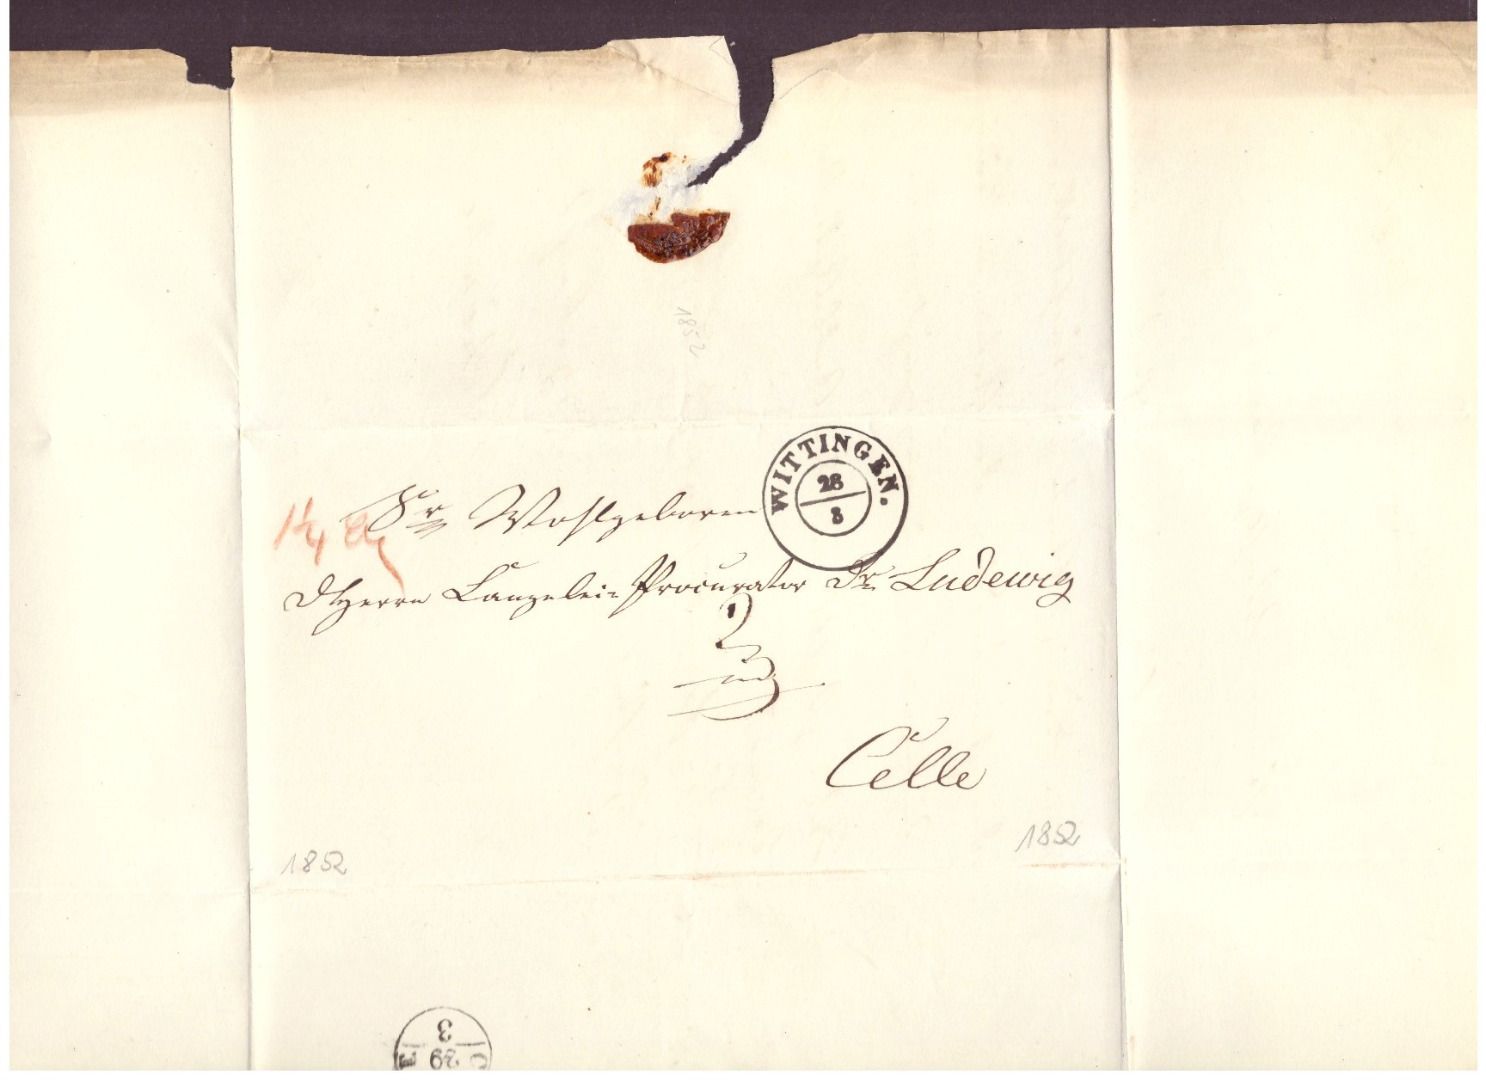 1852
WITTINGEN.
28
8
Sr Wohlgeboren
Herrn Canzelei-Procurator Dr Ludewig
in
Celle
1852
1852
3
29